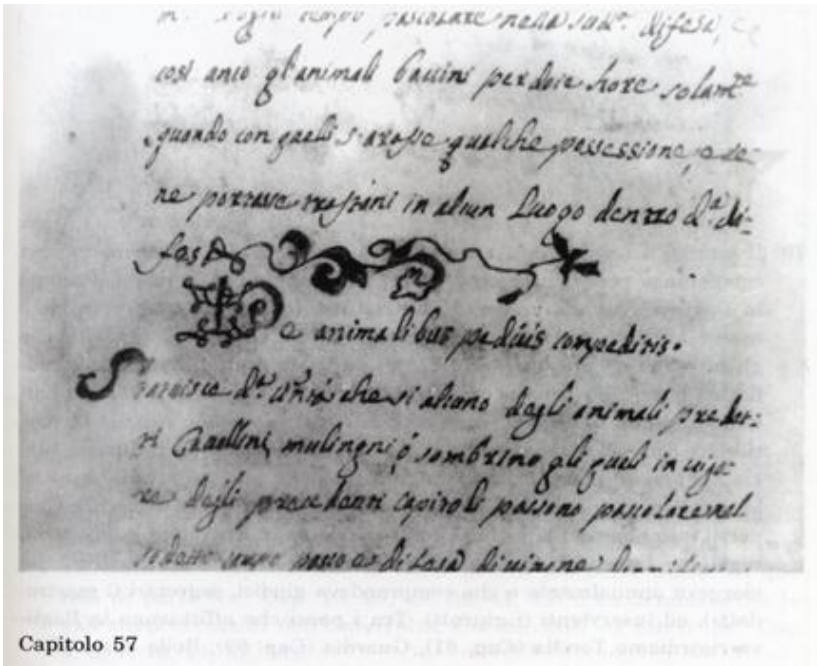 tempo pascolare nella sud.ª difesa, e
così anco gl'animali baccini per doie hore solam.te
quando con quelli s'arasse qualche possessione, e se
ne portasse in alcun Luogo dentro d.ª di-
fesa
De animalibus pred.is compeditis.
Statuisce d.ª Un.tà che si alcuno degli animali predet-
ti Cavallini, mulingni, ò sombrino gli quali in vigo-
re degli precedenti capitoli possono pascolare nel
Capitolo 57